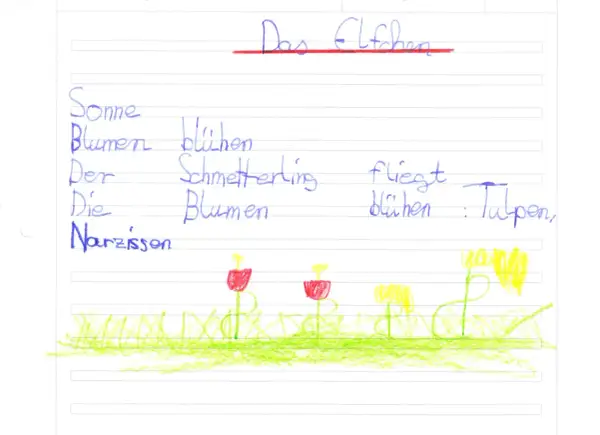 Das Elfchen
Sonne
Blumen blühen
Der Schmetterling fliegt
Die Blumen blühen : Tulpen,
Narzissen